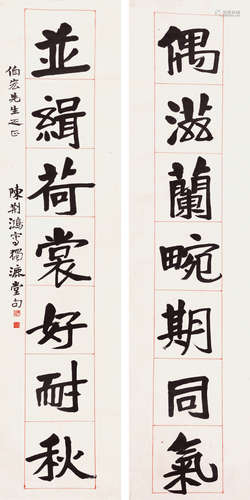 偶滋蘭畹期同氣
並緝荷裳好耐秋
伯宏先生正
陳荆鴻寫獨漉堂句